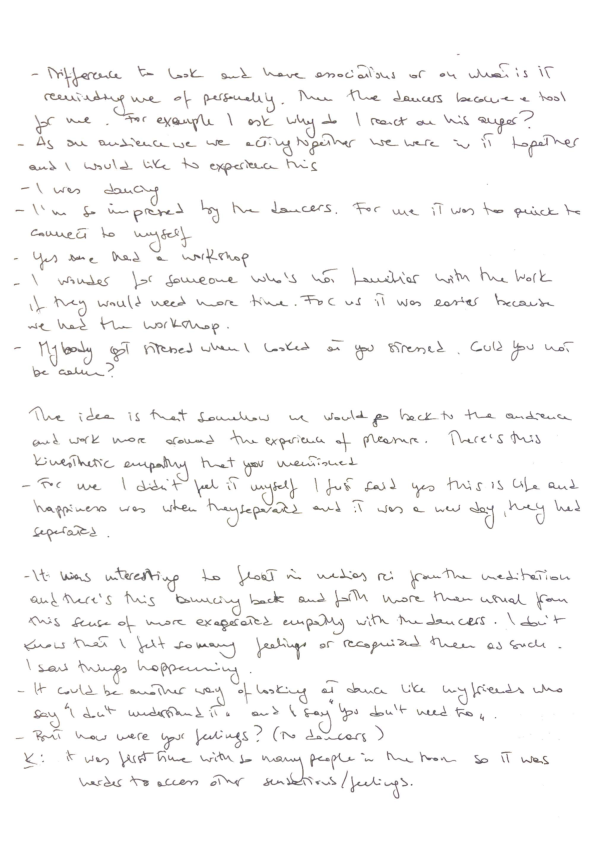 - Difference to look and have associations or on what is it
reminding me of personally. Then the dancers become a tool
for me. For example I ask why do I react on his anger?
- As an audience we we acting together we were in it together
and I would like to experience this
- I was dancing
- I'm so impressed by the dancers. For me it was too quick to
connect to myself
- Yes we had a workshop
- I wonder for someone who's not familiar with the work
if they would need more time. For us it was easier because
we had the workshop.
- My body got stressed when I looked at you stressed. Could you not
be calm?
The idea is that somehow we would go back to the audience
and work more around the experience of pleasure. There's this
kinesthetic empathy that you mentioned
- For me I didn't feel it myself I just said yes this is life and
happiness was when they separated and it was a new day, they had
seperated.
- It was interesting to float in medias res from the meditation
and there's this bouncing back and forth more than usual from
this sense of more exagerated empathy with the dancers. I don't
know that I felt so many feelings or recognized them as such.
I saw things happenning.
- It could be another way of looking at dance like my friends who
say "I don't understand it" and I say "you don't need to".
- But how were your feelings? (to dancers)
K: it was first time with so many people in the room so it was
harder to access other sensations/feelings.